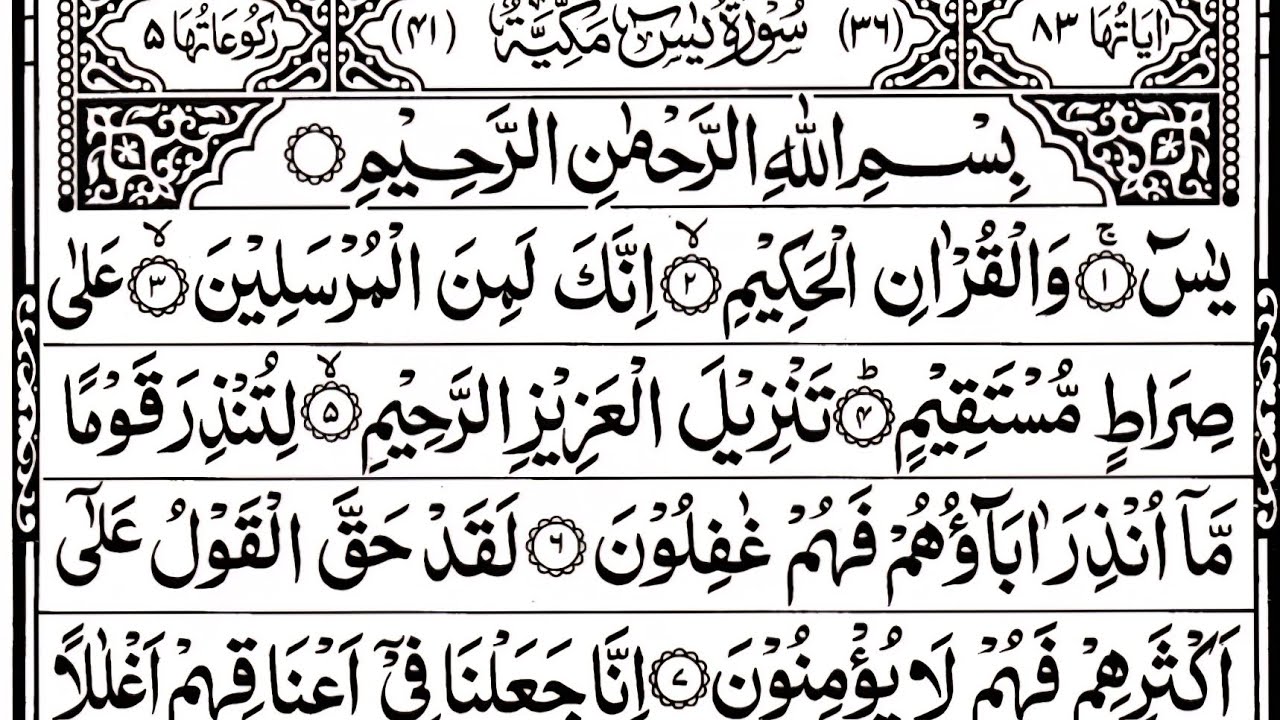 اٰيَاتُهَا ٨٣ (٣٦) سُوْرَةُ يٰسٓ مَكِّيَّةٌ (٤١) رُكُوْعَاتُهَا ٥
بِسْمِ اللّٰهِ الرَّحْمٰنِ الرَّحِيْمِ
يٰسٓ ۚ ١ وَالْقُرْاٰنِ الْحَكِيْمِ ۙ ٢ اِنَّكَ لَمِنَ الْمُرْسَلِيْنَ ۙ ٣ عَلٰى
صِرَاطٍ مُّسْتَقِيْمٍ ؕ ٤ تَنْزِيْلَ الْعَزِيْزِ الرَّحِيْمِ ۙ ٥ لِتُنْذِرَ قَوْمًا
مَّاۤ اُنْذِرَ اٰبَآؤُهُمْ فَهُمْ غٰفِلُوْنَ ٦ لَقَدْ حَقَّ الْقَوْلُ عَلٰۤى
اَكْثَرِهِمْ فَهُمْ لَا يُؤْمِنُوْنَ ٧ اِنَّا جَعَلْنَا فِىْۤ اَعْنَاقِهِمْ اَغْلٰلًا